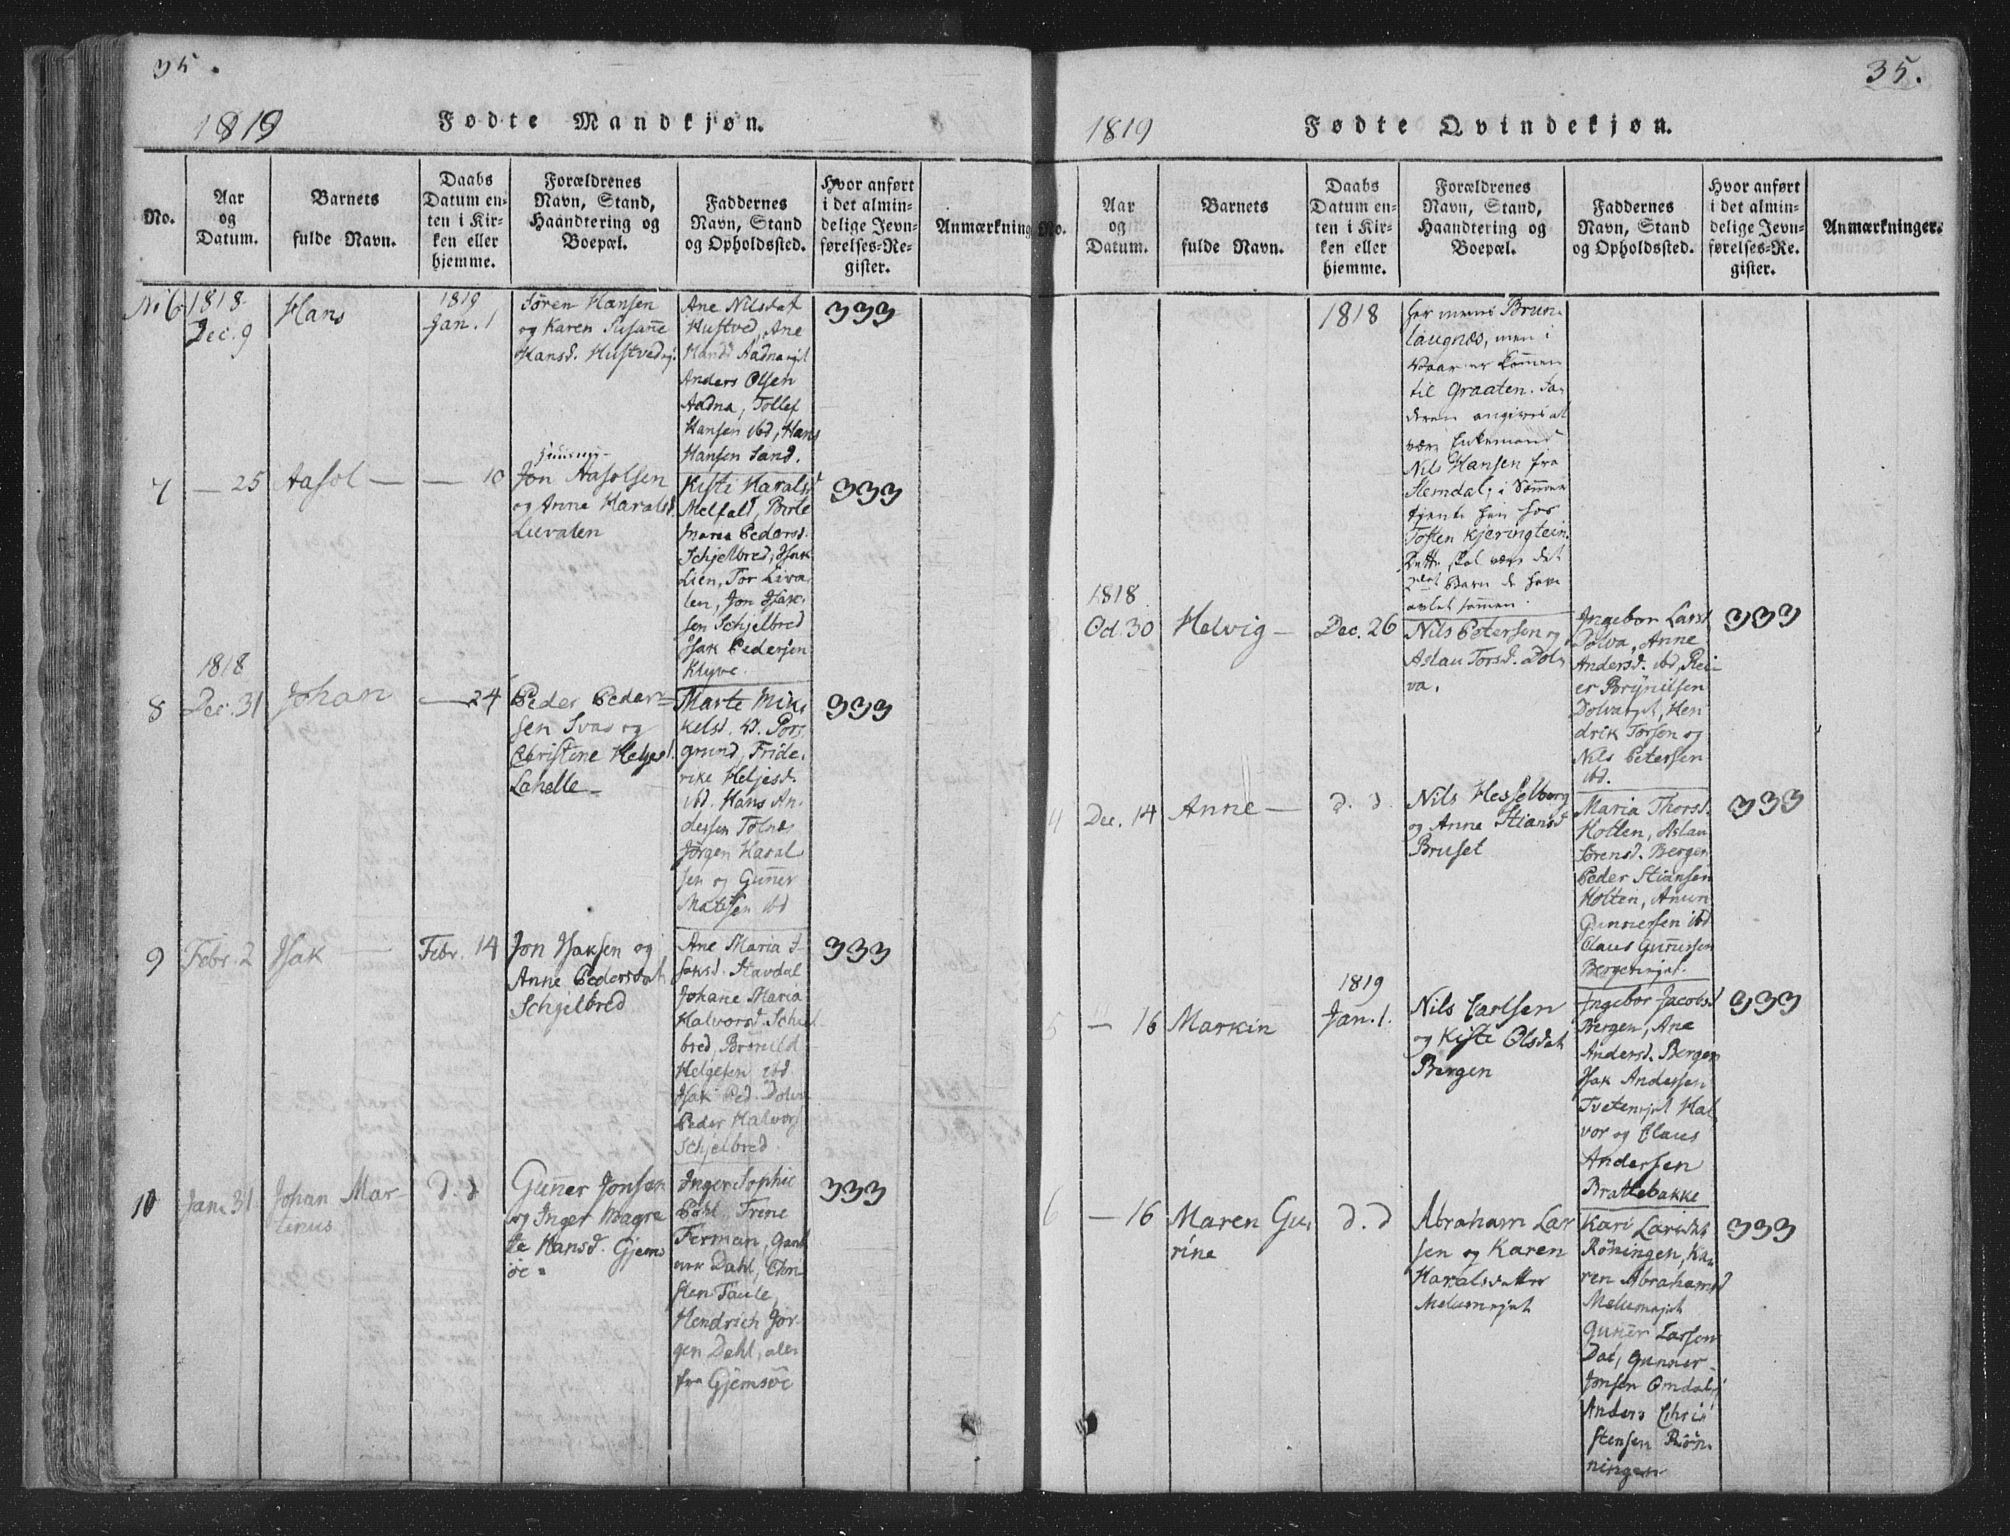 35.
1819
Fødte Mandkjøn.
No.
Aar
og
Datum.
Barnets
fulde Navn.
Daabs
Datum en-
ten i Kir-
ken eller
hjemme.
Forældrenes
Navn, Stand,
Haandtering og
Boepæl.
Faddernes
Navn, Stand
og Opholdssted.
Hvor anført
i det almin-
delige Jevn-
førelses-Re-
gister.
Anmærkning
1818
Dec. 9
Hans
1819
Jan. 1
Søren Hansen
og Karen Susane
Hansd. Hustvedej.
Ane Nilsdat
Hustved, Ane
Hansd Aadnaejet
Anders Olsen
Aadna, Tollef
Hansen ibd, Hans
Hansen Sand.
333
7
— 25
Aasol —
— 10
Jon Aasolsen
og Anne Haralsd.
Luvaten
Kisti Haralsd
Melfald, Birte
Maria Pedersd.
Schjelbred, Isak
Lien, Tor Liva-
ten, Jon Isak-
sen Schjelbred
Isak Pedersen
Klyve.
333
8
1818
Dec. 31
Johan
— 24
Peder Peder-
sen Svas og
Christine Heljesd.
Lahelle
Marte Mik-
kelsd. V. Pors
grund, Fride-
rike Heljesd.
ibd. Hans An-
dersen Tolnes
Jørgen Haral
sen og Guner
Matisen ibd
333
9
Febr. 2
Isak
Febr. 14
Jon Isaksen og
Anne Pedersdat
Schjelbred
Ane Maria I-
saksd. Stavdal
Johane Maria
Halvorsd. Schjel
bred, Brynild
Helgesen ibd
Isak Ped. Dolva
Peder Halvors
Schjelbred.
333
10
Jan. 31
Johan Mar-
tinus
d. d
Guner Jonsen
og Inger Magre
te Hansd. Gjems
øe
Inger Sophie
Pøhl, Trine
Ferman, Gun
Dahl, Chri
sten Taule,
Hendrich Jør-
gen Dahl, ale
fra Gjemsöe
333
35.
1819
Fødte Qvindekjøn.
No.
Aar
og
Datum.
Barnets
fulde Navn.
Daabs
Datum en-
ten i Kir-
ken eller
hjemme.
Forældrenes
Navn, Stand,
Haandtering og
Boepæl.
Faddernes
Navn, Stand
og Opholdssted.
Hvor anført
i det almin-
delige Jevn-
førelses-Re-
gister.
Anmærkninger.
1818
her menes Brun-
laugnæs, men i
Vaar er kommen
til Graaten. Fa-
deren angives at
være Enkemand
Nils Hansen fra
Slemdal; i Sommer
tjente han hos
Toften Kjeringtein.
Dette skal være det
2det Barn de have
avlet sammen.
1818
Oct. 30
Helvig —
Dec. 26
Nils Petersen og
Aslau Torsd. Dol-
va.
Ingebor Larsd
Dolva, Anne
Andersd. ibd, Rei-
er Brynilsen
Dolvaejet, Hen
drik Torsen og
Nils Petersen
ibd.
333
4
Dec. 14
Anne —
d. d.
Nils Hesselberg
og Anne Stiansd
Bruset
Maria Thorsd.
Holten, Aslau
Sørensd. Bergen
Peder Stiansen
Holten, Amun
Gunnersen ibd
Claus Gunersen
Bergenejet.
333
5
— 16
Markin
1819
Jan. 1.
Nils Carlsen
og Kisti Olsdat
Bergen
Ingebor Jacobsd
Bergen, Ane
Andersd. Bergen
Isak Andersen
Tvetenejet Hal
vor og Claus
Andersen
Brattebakke
333
6
— 16
Maren Gu-
rine
d. d
Abraham Lar
sen og Karen
Haralsdatter
Melumejet
Kari Larsdat
Röningen, Ka-
ren Abrahamsd
Melumejet
Guner Larsen
Dal, Gunner
Jonsen Omdalsej
Anders Chri
stensen Røn-
ningen
333